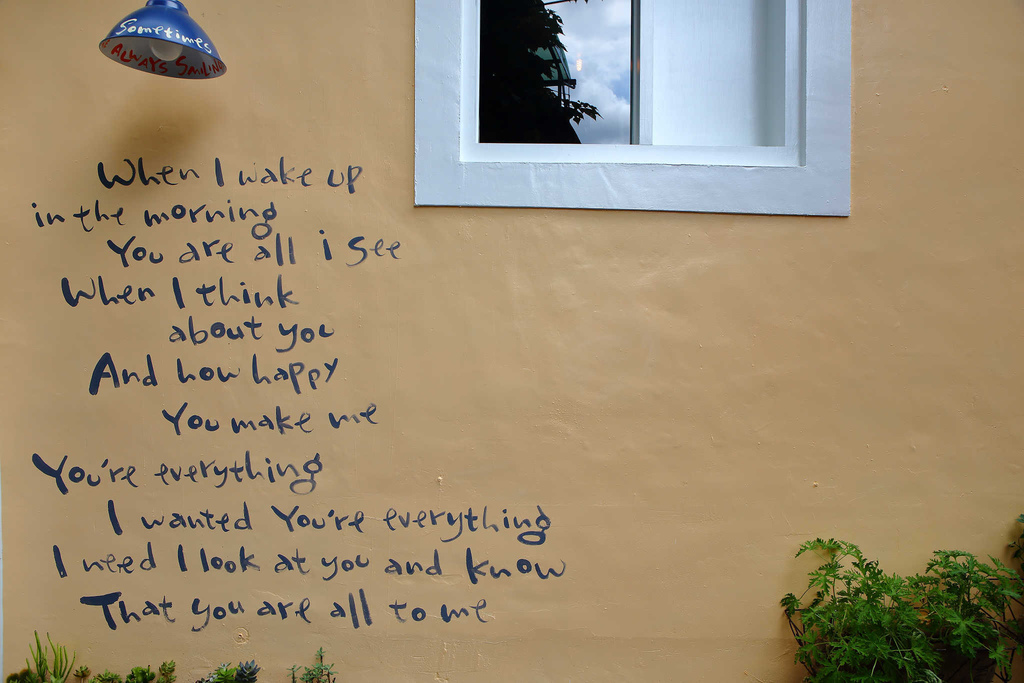 Sometimes
ALWAYS SMILING
When I wake up
in the morning
You are all i see
When I think
about you
And how happy
You make me
You're everything
I wanted You're everything
I need I look at you and know
That you are all to me